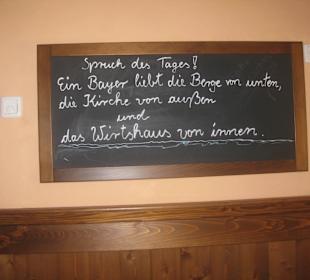 Spruch des Tages!
Ein Bayer liebt die Berge von unten,
die Kirche von außen
und
das Wirtshaus von innen.